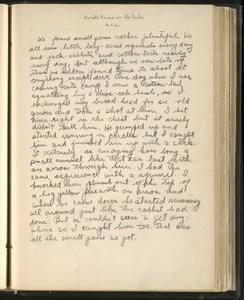 Small Game on the Gila
We found small game rather plentiful. We
all saw little long-eared squirrels every day
and jack rabbits and cotton tails nearly
every day, but although we now lots of
time we seldom found time to shoot at
anything except deer. One day when I was
coming into camp I saw a cotton tail
squatting in a thick-oak bush, so I
exchanged my broad head for an old
arrow and took a shot at him. I hit
him right in the chest but it surely
didn't faze him. He jumped up and
started running in circles but I caught
him and finished him up with a rock.
It certainly is amazing how long a
small animal like that can last with
an arrow through him. I had the
same experience with a squirrel I
knocked him plumb out of the top of
a big yellow pine with an arrow and
when he came down he started running
all around just like the rabbit had
done. But he couldn't seem to get any-
where so I caught him too. That was
all the small game we got.